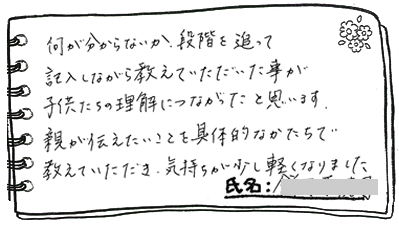 何が分からないか、段階を追って
記入しながら教えていただいた事が
子供たちの理解につながったと思います.
親が伝えたいことを具体的なかたちで
教えていただき、気持ちが少し軽くなりました
氏名: